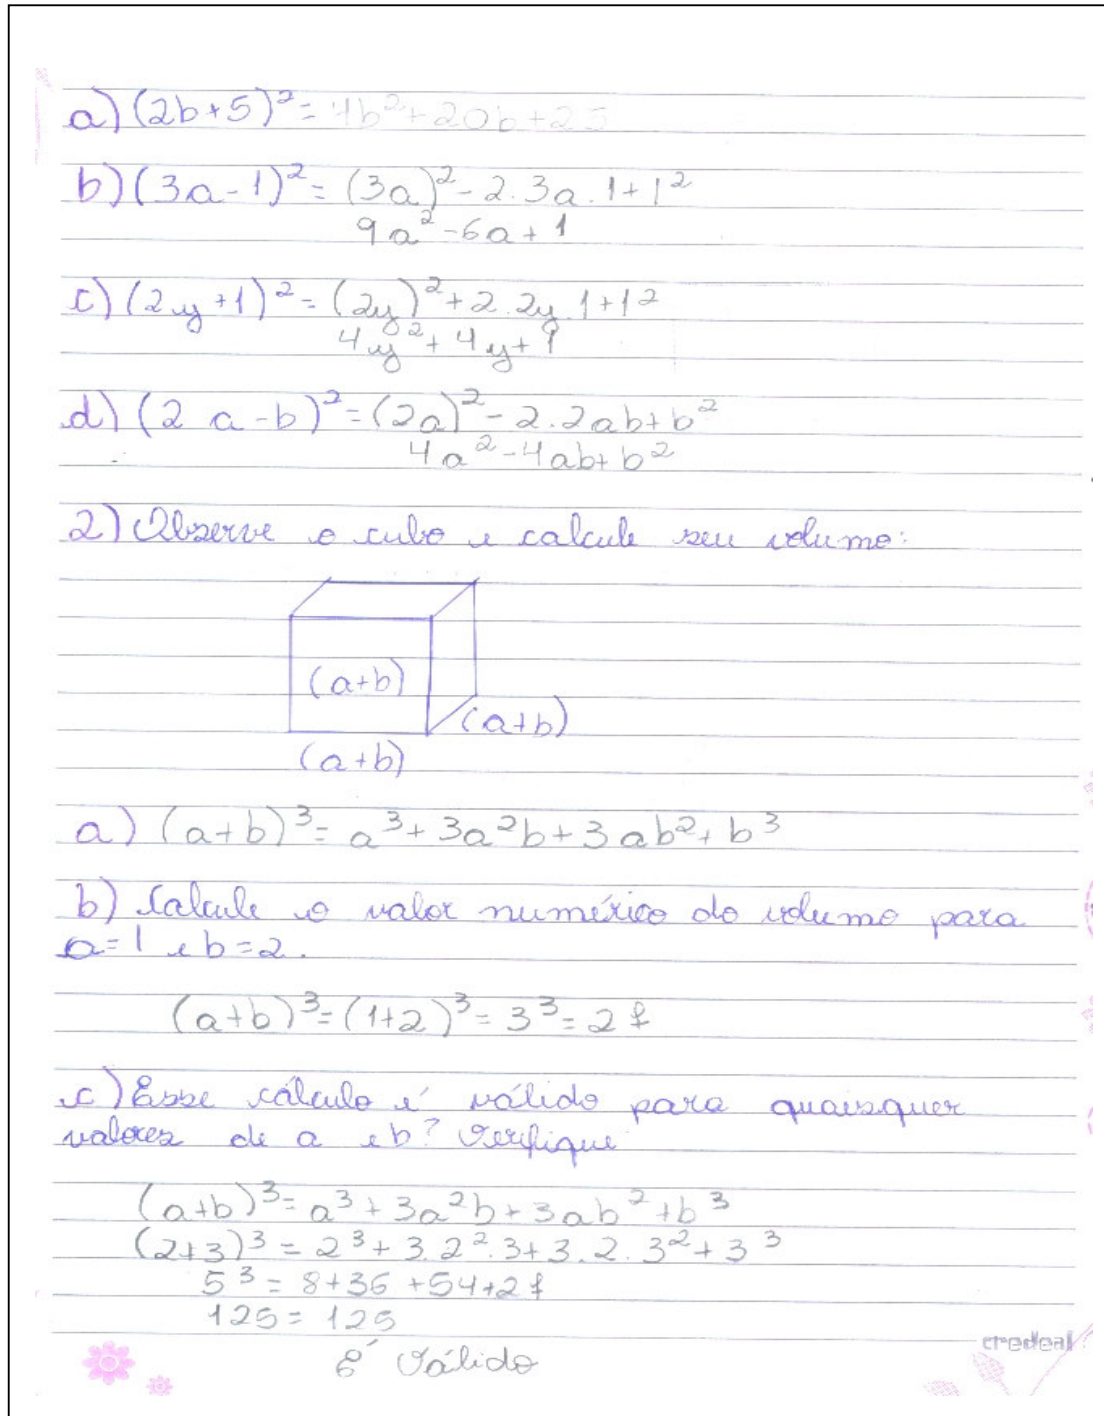 a) (2b+5)² = 4b²+20b+25
b) (3a-1)² = (3a)² - 2.3a.1+1²
9a²-6a+1
c) (2y+1)² = (2y)²+2.2y.1+1²
4y²+4y+1
d) (2a-b)² = (2a)²-2.2ab+b²
4a²-4ab+b²
2) Observe o cubo e calcule seu volume:
(a+b)
(a+b)
(a+b)
a) (a+b)³ = a³+3a²b+3ab²+b³
b) Calcule o valor numérico do volume para
a=1 e b=2.
(a+b)³=(1+2)³=3³=27
c) Esse cálculo é válido para quaisquer
valores de a e b? Verifique
(a+b)³=a³+3a²b+3ab²+b³
(2+3)³ = 2³+3.2².3+3.2.3²+3³
5³ = 8+36+54+27
125 = 125
É Válido
credeal